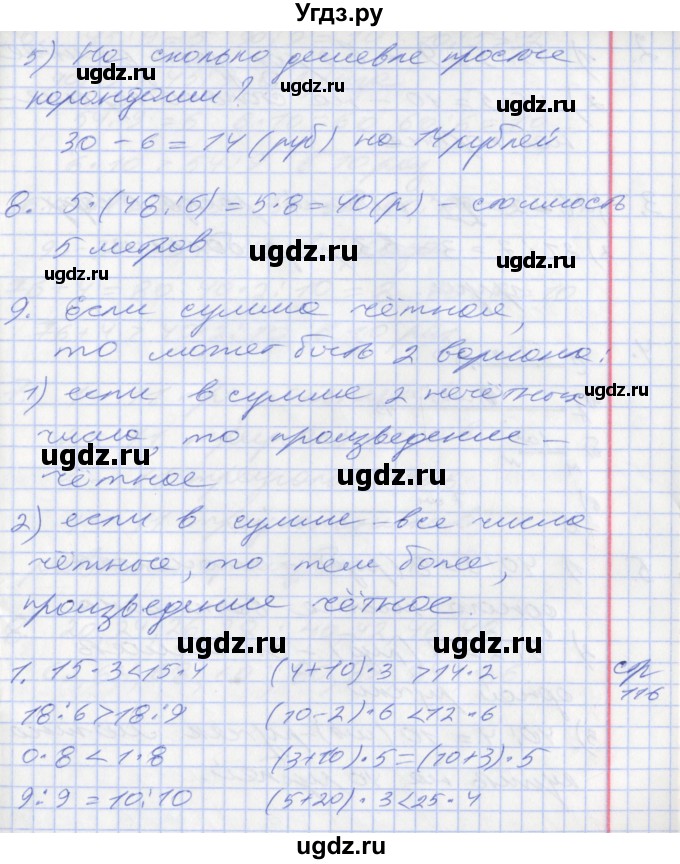 Угдз.ру
5) На сколько дешевле простые
карандаши?
30 - 6 = 14 (руб) на 14 рублей
8. 5·(48:6) = 5·8 = 40(р) - стоимость
5 метров
9. Если сумма чётная,
то может быть 2 вариана:
1) если в сумме 2 нечётных
числа, то произведение -
чётное
2) если в сумме - все числа
чётные, то тем более,
произведение чётное.
1. 15·3<15·4 (4+10)·3 >14·2 ср
116
18:6>18:9 (10-2)·6 <12·6
0·8 < 1·8 (3+10)·5=(10+3)·5
9:9 = 10:10 (5+20)·3<25·4
ugdz.ru
ugdz.ru
ugdz.ru
ugdz.ru
ugdz.ru
ugdz.ru
ugdz.ru
ugdz.ru
ugdz.ru
ugdz.ru
ugdz.ru
ugdz.ru